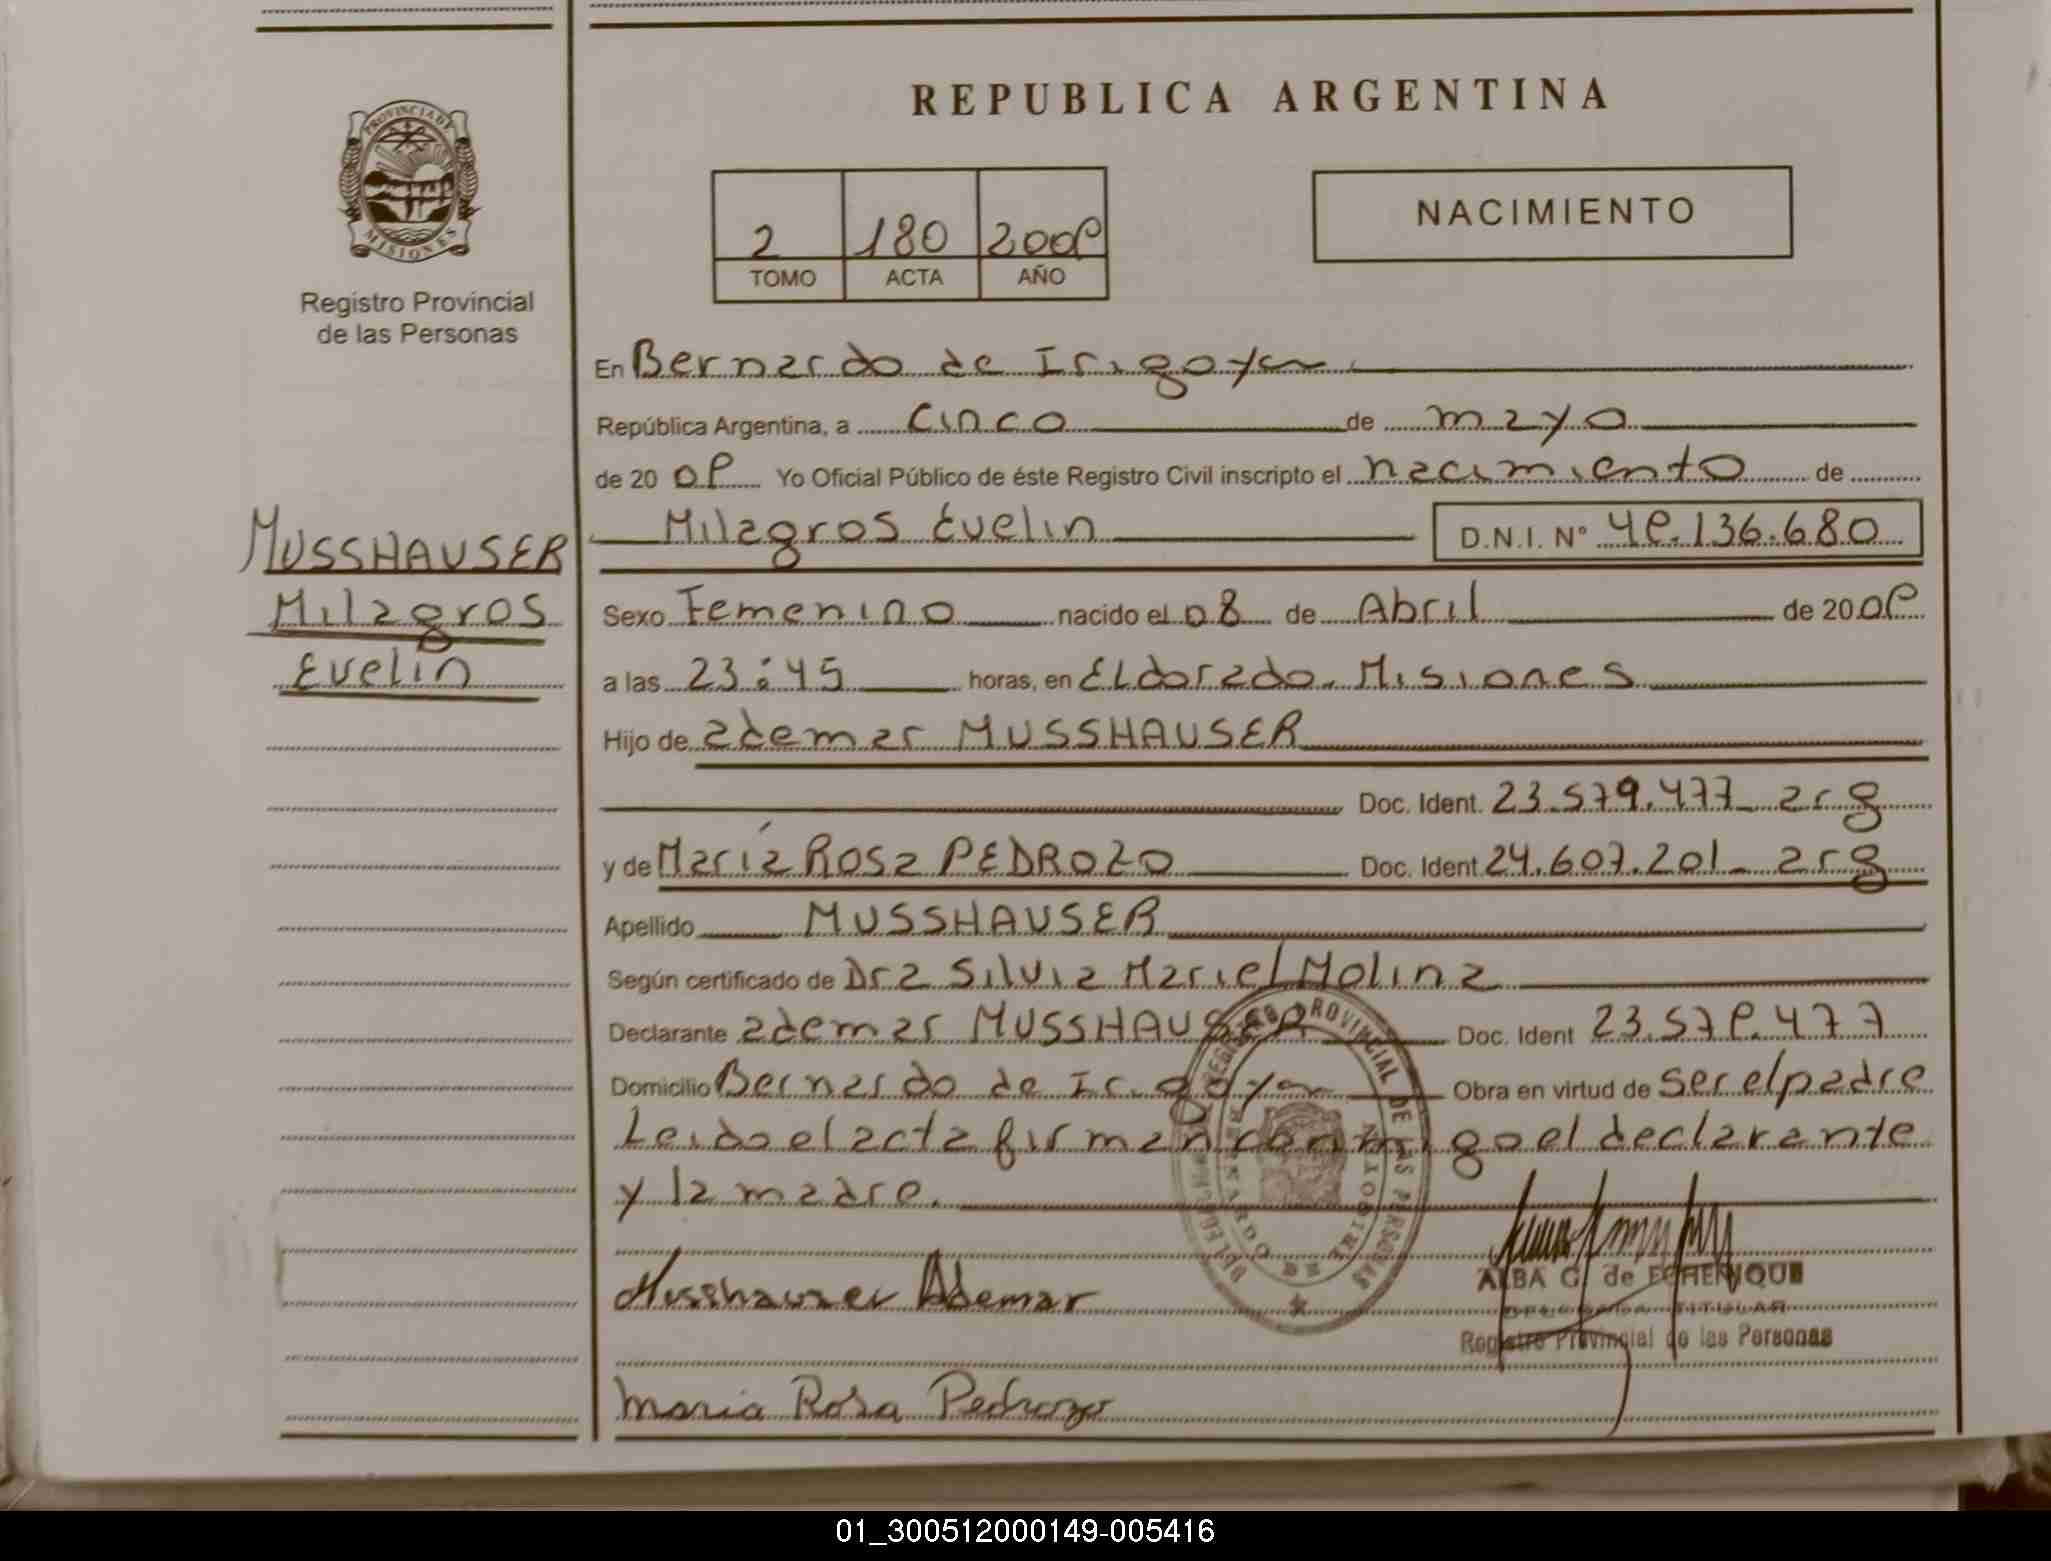 REPUBLICA ARGENTINA
PROVINCIA DE
MISIONES
Registro Provincial
de las Personas
2 180 2009
TOMO ACTA AÑO
NACIMIENTO
En Bernardo de Irigoyen
República Argentina, a cinco de mayo
de 20 09 Yo Oficial Público de éste Registro Civil inscripto el nacimiento de
MUSSHAUSER
Milagros
Evelin
Milagros Evelin D.N.I. N° 49.136.680
Sexo Femenino nacido el 08 de Abril de 20 09
a las 23:45 horas, en Eldorado. Misiones
Hijo de ademar MUSSHAUSER
Doc. Ident. 23.579.477_ arg
y de María Rosa PEDROZO Doc. Ident 24.607.201_ arg
Apellido MUSSHAUSER
Según certificado de Dra Silvia Mariel Molina
Declarante ademar MUSSHAUSER Doc. Ident 23.579.477
Domicilio Bernardo de Irigoyen Obra en virtud de ser el padre
Leido el acta firman conmigo el declarante
y la madre.
REGISTRO PROVINCIAL DE LAS PERSONAS
Musshauser Ademar
ALBA G. de ECHENIQUE
DELEGADA TITULAR
Registro Provincial de las Personas
Maria Rosa Pedrozo
01_300512000149-005416